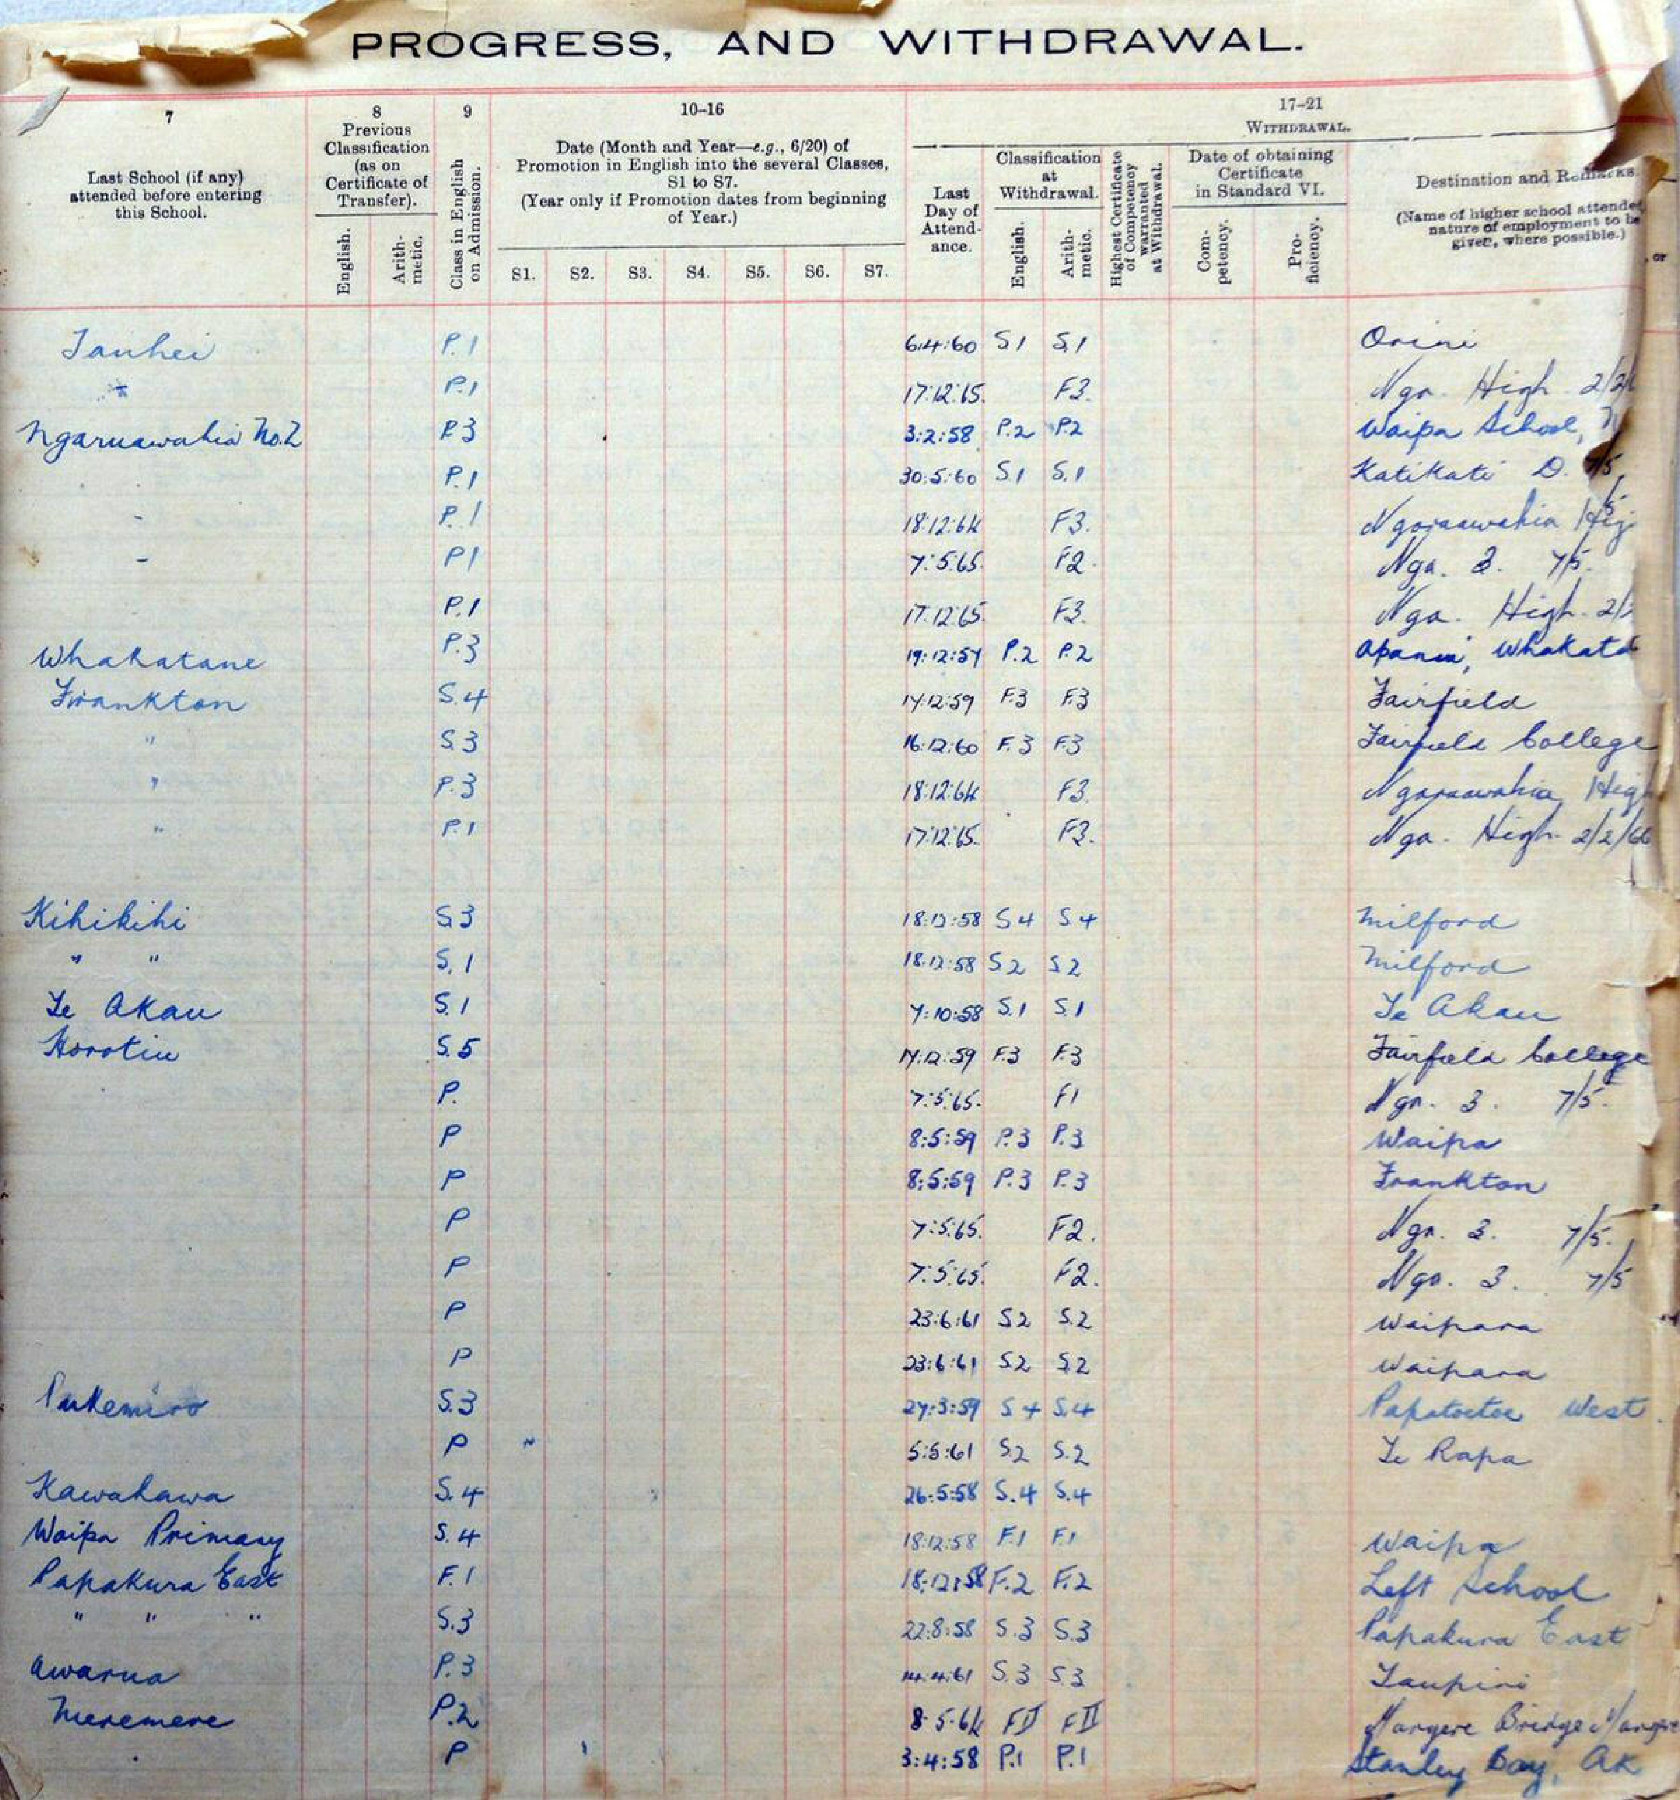 PROGRESS, AND WITHDRAWAL.
7
Last School (if any)
attended before entering
this School.
8
Previous
Classification
(as on
Certificate of
Transfer).
English.
Arith-
metic.
9
Class in English
on Admission.
10–16
Date (Month and Year—e.g., 6/20) of
Promotion in English into the several Classes,
S1 to S7.
(Year only if Promotion dates from beginning
of Year.)
S1. S2. S3. S4. S5. S6. S7.
17–21
WITHDRAWAL.
Last
Day of
Attend-
ance.
Classification
at
Withdrawal.
English.
Arith-
metic.
Highest Certificate
of Competency
warranted
at Withdrawal.
Date of obtaining
Certificate
in Standard VI.
Com-
petency.
Pro-
ficiency.
Destination and Remarks.
(Name of higher school attended
nature of employment to be
given, where possible.)
or
Tauhei P.1 6:4:60 S1 S.1 Orini
" P.1 17:12:65. F3. Nga. High 2/2/6
Ngaruawahia No.2 P.3 3:2:58 P.2 P.2 Waipa School,
P.1 30:5:60 S.1 S.1 Katikati D. 7/5
" P.1 18:12:64 F3. Ngaruawahia Hig
" P1 7:5:65. F2. Nga. 3. 7/5.
P.1 17:12:65. F3. Nga. High. 2/2
Whakatane P.3 19:12:57 P.2 P.2 Apanui, Whakata
Frankton S.4 17:12:59 F3 F.3 Fairfield
" S.3 16:12:60 F.3 F.3 Fairfield College
" P.3 18:12:64 F3. Ngaruawahia High
" P.1 17:12:65. F3. Nga. High 2/2/66
Kihikihi S3 18:12:58 S4 S4 Milford
" " S.1 18:12:58 S2 S2 Milford
Te Akau S.1 7:10:58 S.1 S.1 Te Akau
Horotiu S.5 17:12:59 F.3 F.3 Fairfield College
P. 7:5:65. F1 Nga. 3. 7/5.
P 8:5:59 P.3 P.3 Waipa
P 8:5:59 P.3 P.3 Frankton
P 7:5:65. F2. Nga. 3. 7/5.
P 7:5:65. F2. Nga. 3. 7/5
P 23:6:61 S2 S.2 Waipara
P 23:6:61 S2 S2 Waipara
Pukemiro S.3 27:3:59 S4 S.4 Papatoetoe West
P 5:5:61 S2 S.2 Te Rapa
Kawakawa S.4 26:5:58 S.4 S.4
Waipa Primary S.4 18:12:58 F.1 F.1 Waipa
Papakura East F.1 18:12:58 F.2 F.2 Left School
" " " S.3 22:8:58 S.3 S.3 Papakura East
Awarua P.3 14:4:61 S.3 S3 Taupiri
Meremere P.2 8:5:64 FII FII Mangere Bridge Mangere
P 3:4:58 P.1 P.1 Stanley Bay, Ak